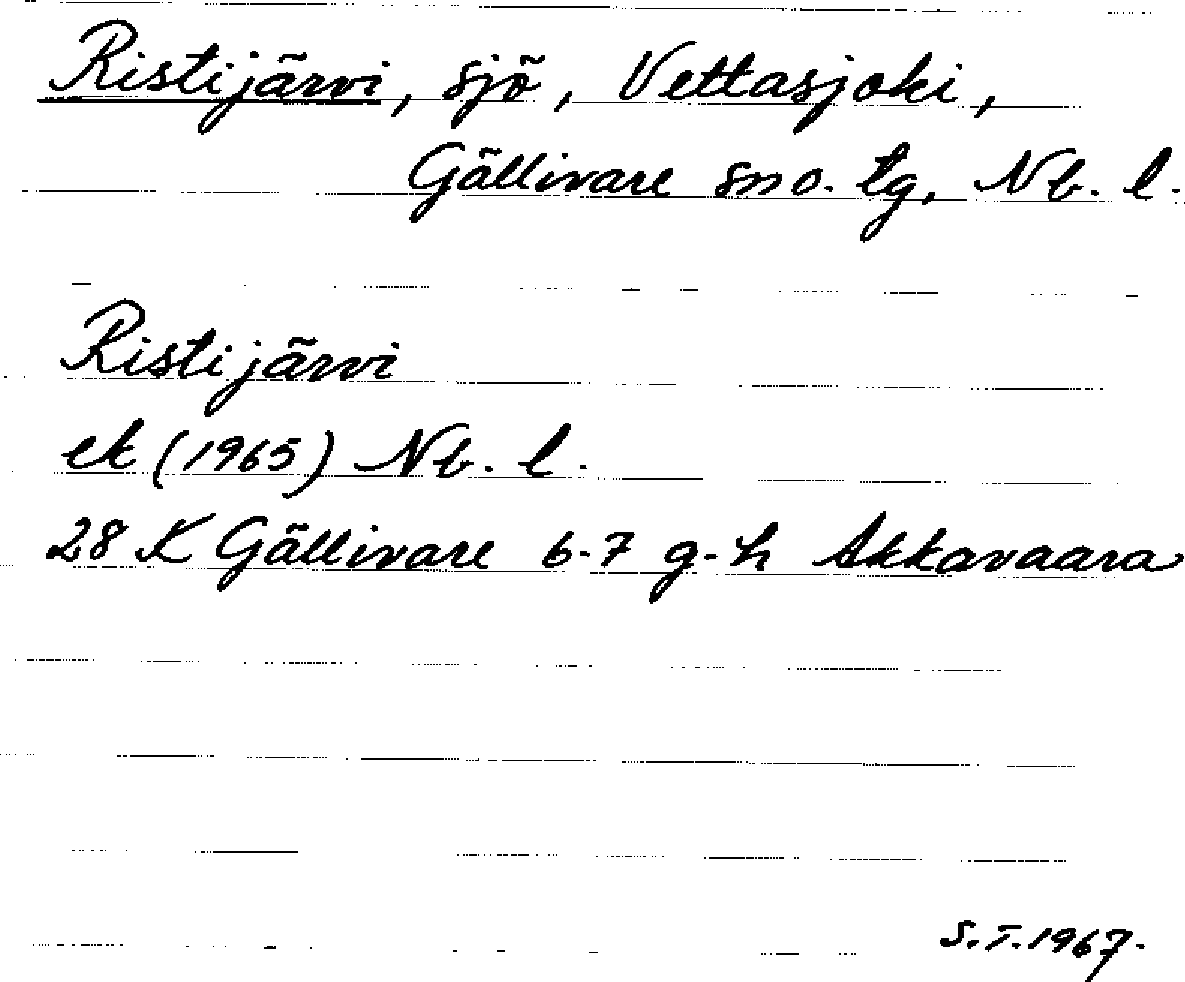 Ristijärvi, sjö, Vettasjoki,
Gällivare sn o. tg, Nb. l.
Ristijärvi
ek (1965) Nb. l.
28 K Gällivare 6-7 g-h Akkavaara
S.I.1967.